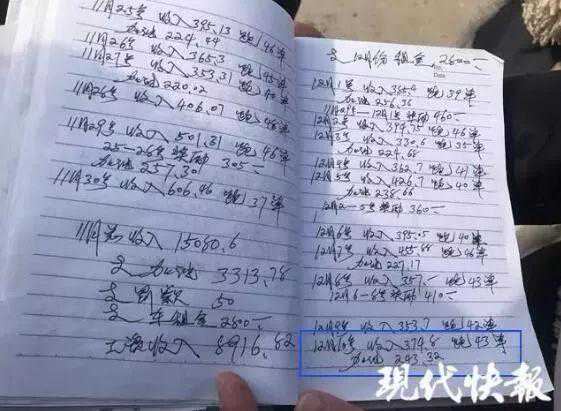 11月25号 收入395.13 跑46单
加油224.44
11月26号 收入365.3 跑45单
11月27号 收入353.31 跑40单
加油220.2
11月28号 收入406.07 跑46单
11月29号 收入501.31 跑46单
25—28号奖励 305—
加油257.30
11月30号 收入606.46 跑37单
11月总收入15080.6
支加油 3313.78
支罚款 50
支车租金2800—
工资收入8916.82
支12月份租金 2800—
Date
12月1号 收入 跑39单
加油256.36
奖励460—
12月2号 收入379.75 跑46单
12月3号 收入330.6 跑35单
加油224.68
12月4号 收入362.7 跑41单
12月5号 收入426.7 跑40单
加油238.66
12月2—5号奖励360—
12月6号 收入395.5 跑40单
12月7号 收入455.68 跑46单
加油227.17
12月8号 收入357.— 跑43单
12月6—8号奖励410—
12月9号 收入353.7 跑42单
12月10号 收入379.8 跑43单
加油243.32
现代快报